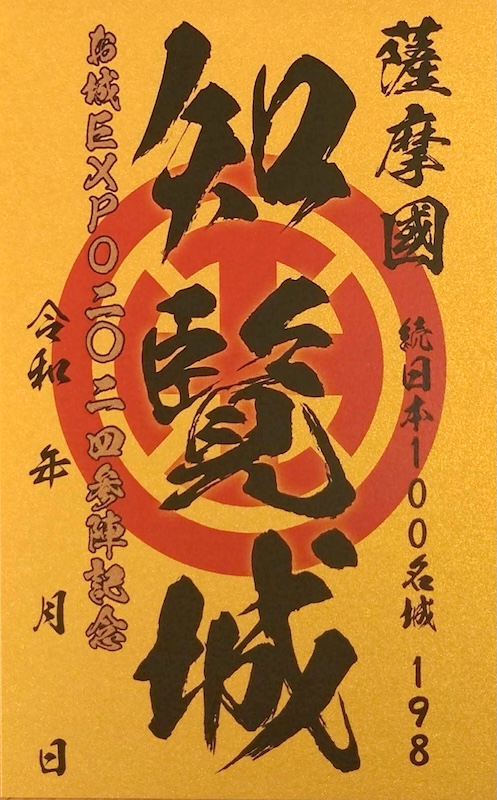 薩摩國
続日本100名城 198
知覧城
お城EXPO二〇二四参陣記念
令和 年 月 日